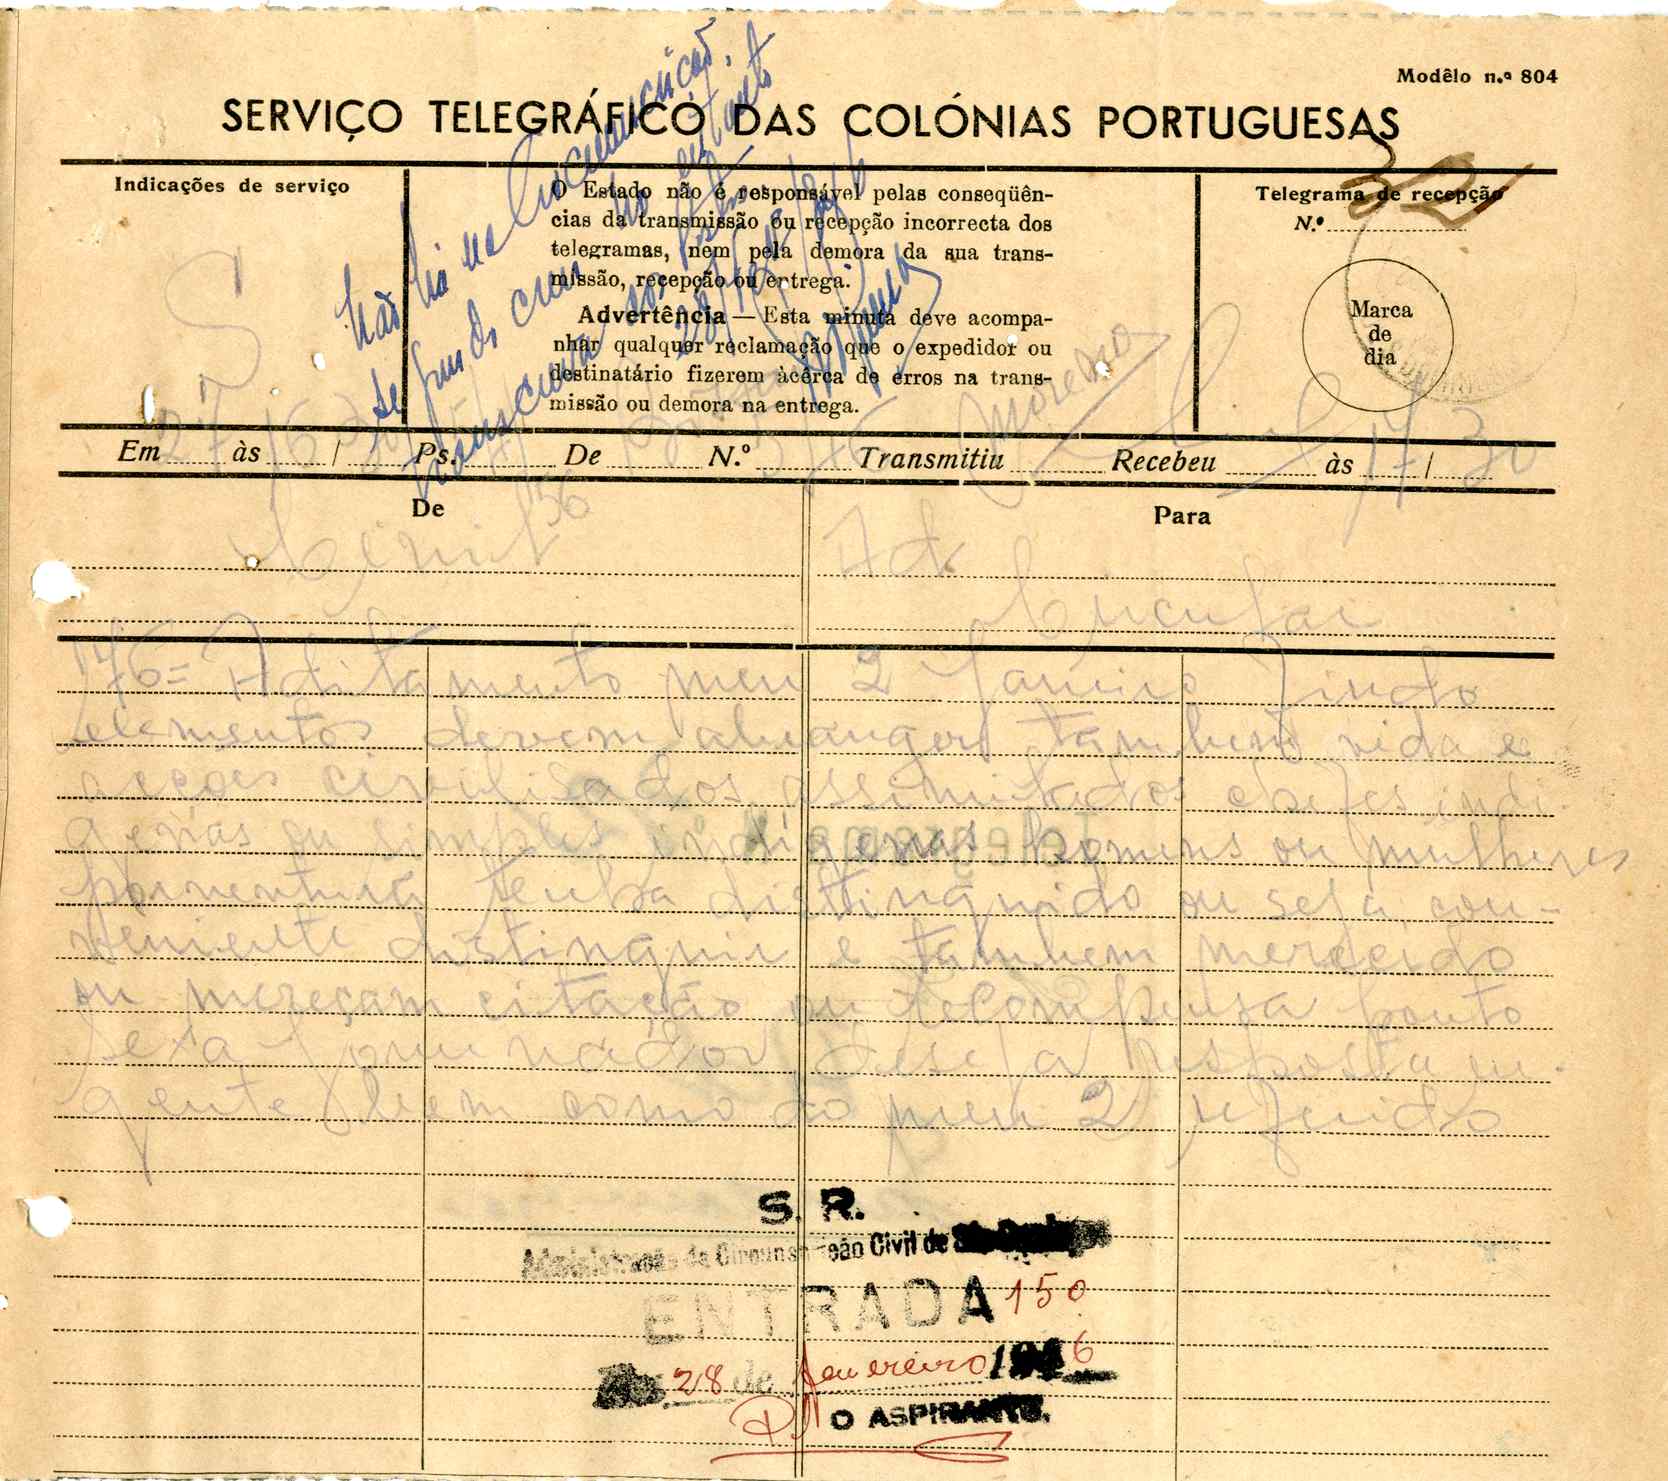 Modêlo n.º 804
SERVIÇO TELEGRÁFICO DAS COLÓNIAS PORTUGUESAS
Indicações de serviço
O Estado não é responsável pelas conseqüên-
cias da transmissão ou recepção incorrecta dos
telegramas, nem pela demora da sua trans-
missão, recepção ou entrega.
Advertência — Esta minuta deve acompa-
nhar qualquer reclamação que o expedidor ou
destinatário fizerem àcêrca de erros na trans-
missão ou demora na entrega.
Telegrama de recepção
N.º 321
Marca
de
dia
Não há na Circunscrição
S
27 16 Moreno 17 30
Em às / Ps. De N.º Transmitiu Recebeu às /
De
Para
56
Adr
Circular
76 = Aditamento meu 2 Janeiro findo
elementos devem abranger tambem vida e
acções civilisados assimilados chefes indi-
genas ou simples indigenas homens ou mulheres
porventura tenha distinguido ou seja con-
veniente distinguir e tambem merecido
ou mereçam citação ou recompensa ponto
Sexa Governador deseja resposta ur-
gente bem como do meu 2 referido
S. R.
Administração da Circunscrição Civil de
ENTRADA 150
28 de fevereiro 1946
O ASPIRANTE,